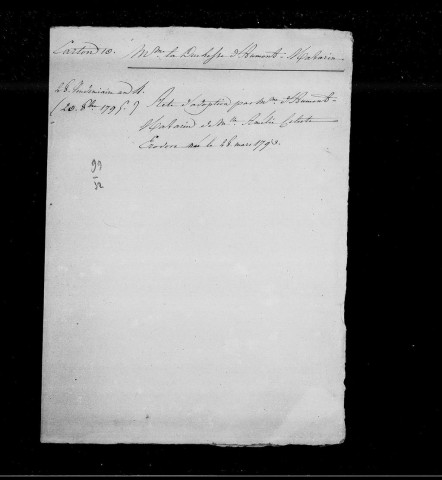 Carton 10. Mme la Duchesse d'Aumont-Mazarin
28. Vendemiaire an 4.
(20. 8bre 1795.) Acte d'adoption par Mme d'Aumont-
Mazarin de Mlle Amélie Céleste
née le 28. mars 1793.